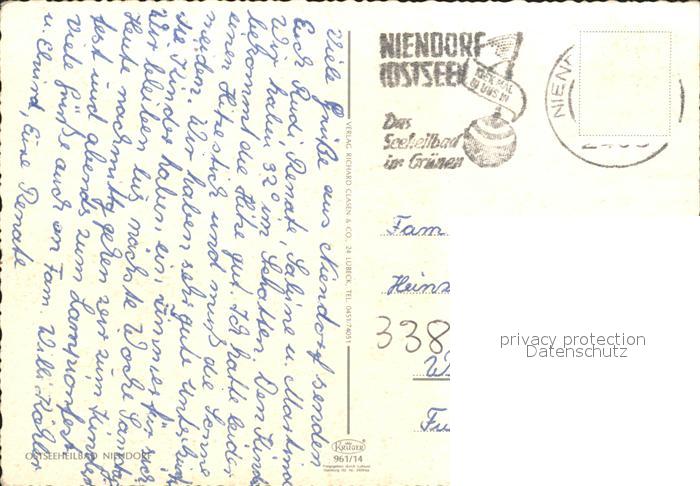 Viele Grüße aus Niendorf senden
Euch Rudi, Renate, Sabine u. Martina
Wir haben 32° im Schatten. Den Kindern
bekommt die Hitze gut. Ich hatte leider
einen Hitzestich und muß die Sonne
meiden. Wir haben sehr gute Unterkunft
die Kinder haben ein Zimmer für sich
Wir bleiben bis nächste Woche Samstag
Heute nachmittg gehen wir zum Kinder
fest und abends zum Lampionfest
Viele Grüße auch an Fam. Willi Köhler
u. Eure Renate
OSTSEEHEILBAD NIENDORF
VERLAG RICHARD CLASEN & CO. 24 LÜBECK, TEL. 0451/74051
KRÜGER
961/14
NIENDORF
(OSTSEE)
Das
Seeheilbad
im Grünen
NIEN
Fam
Heins
338
W
privacy protection
Datenschutz